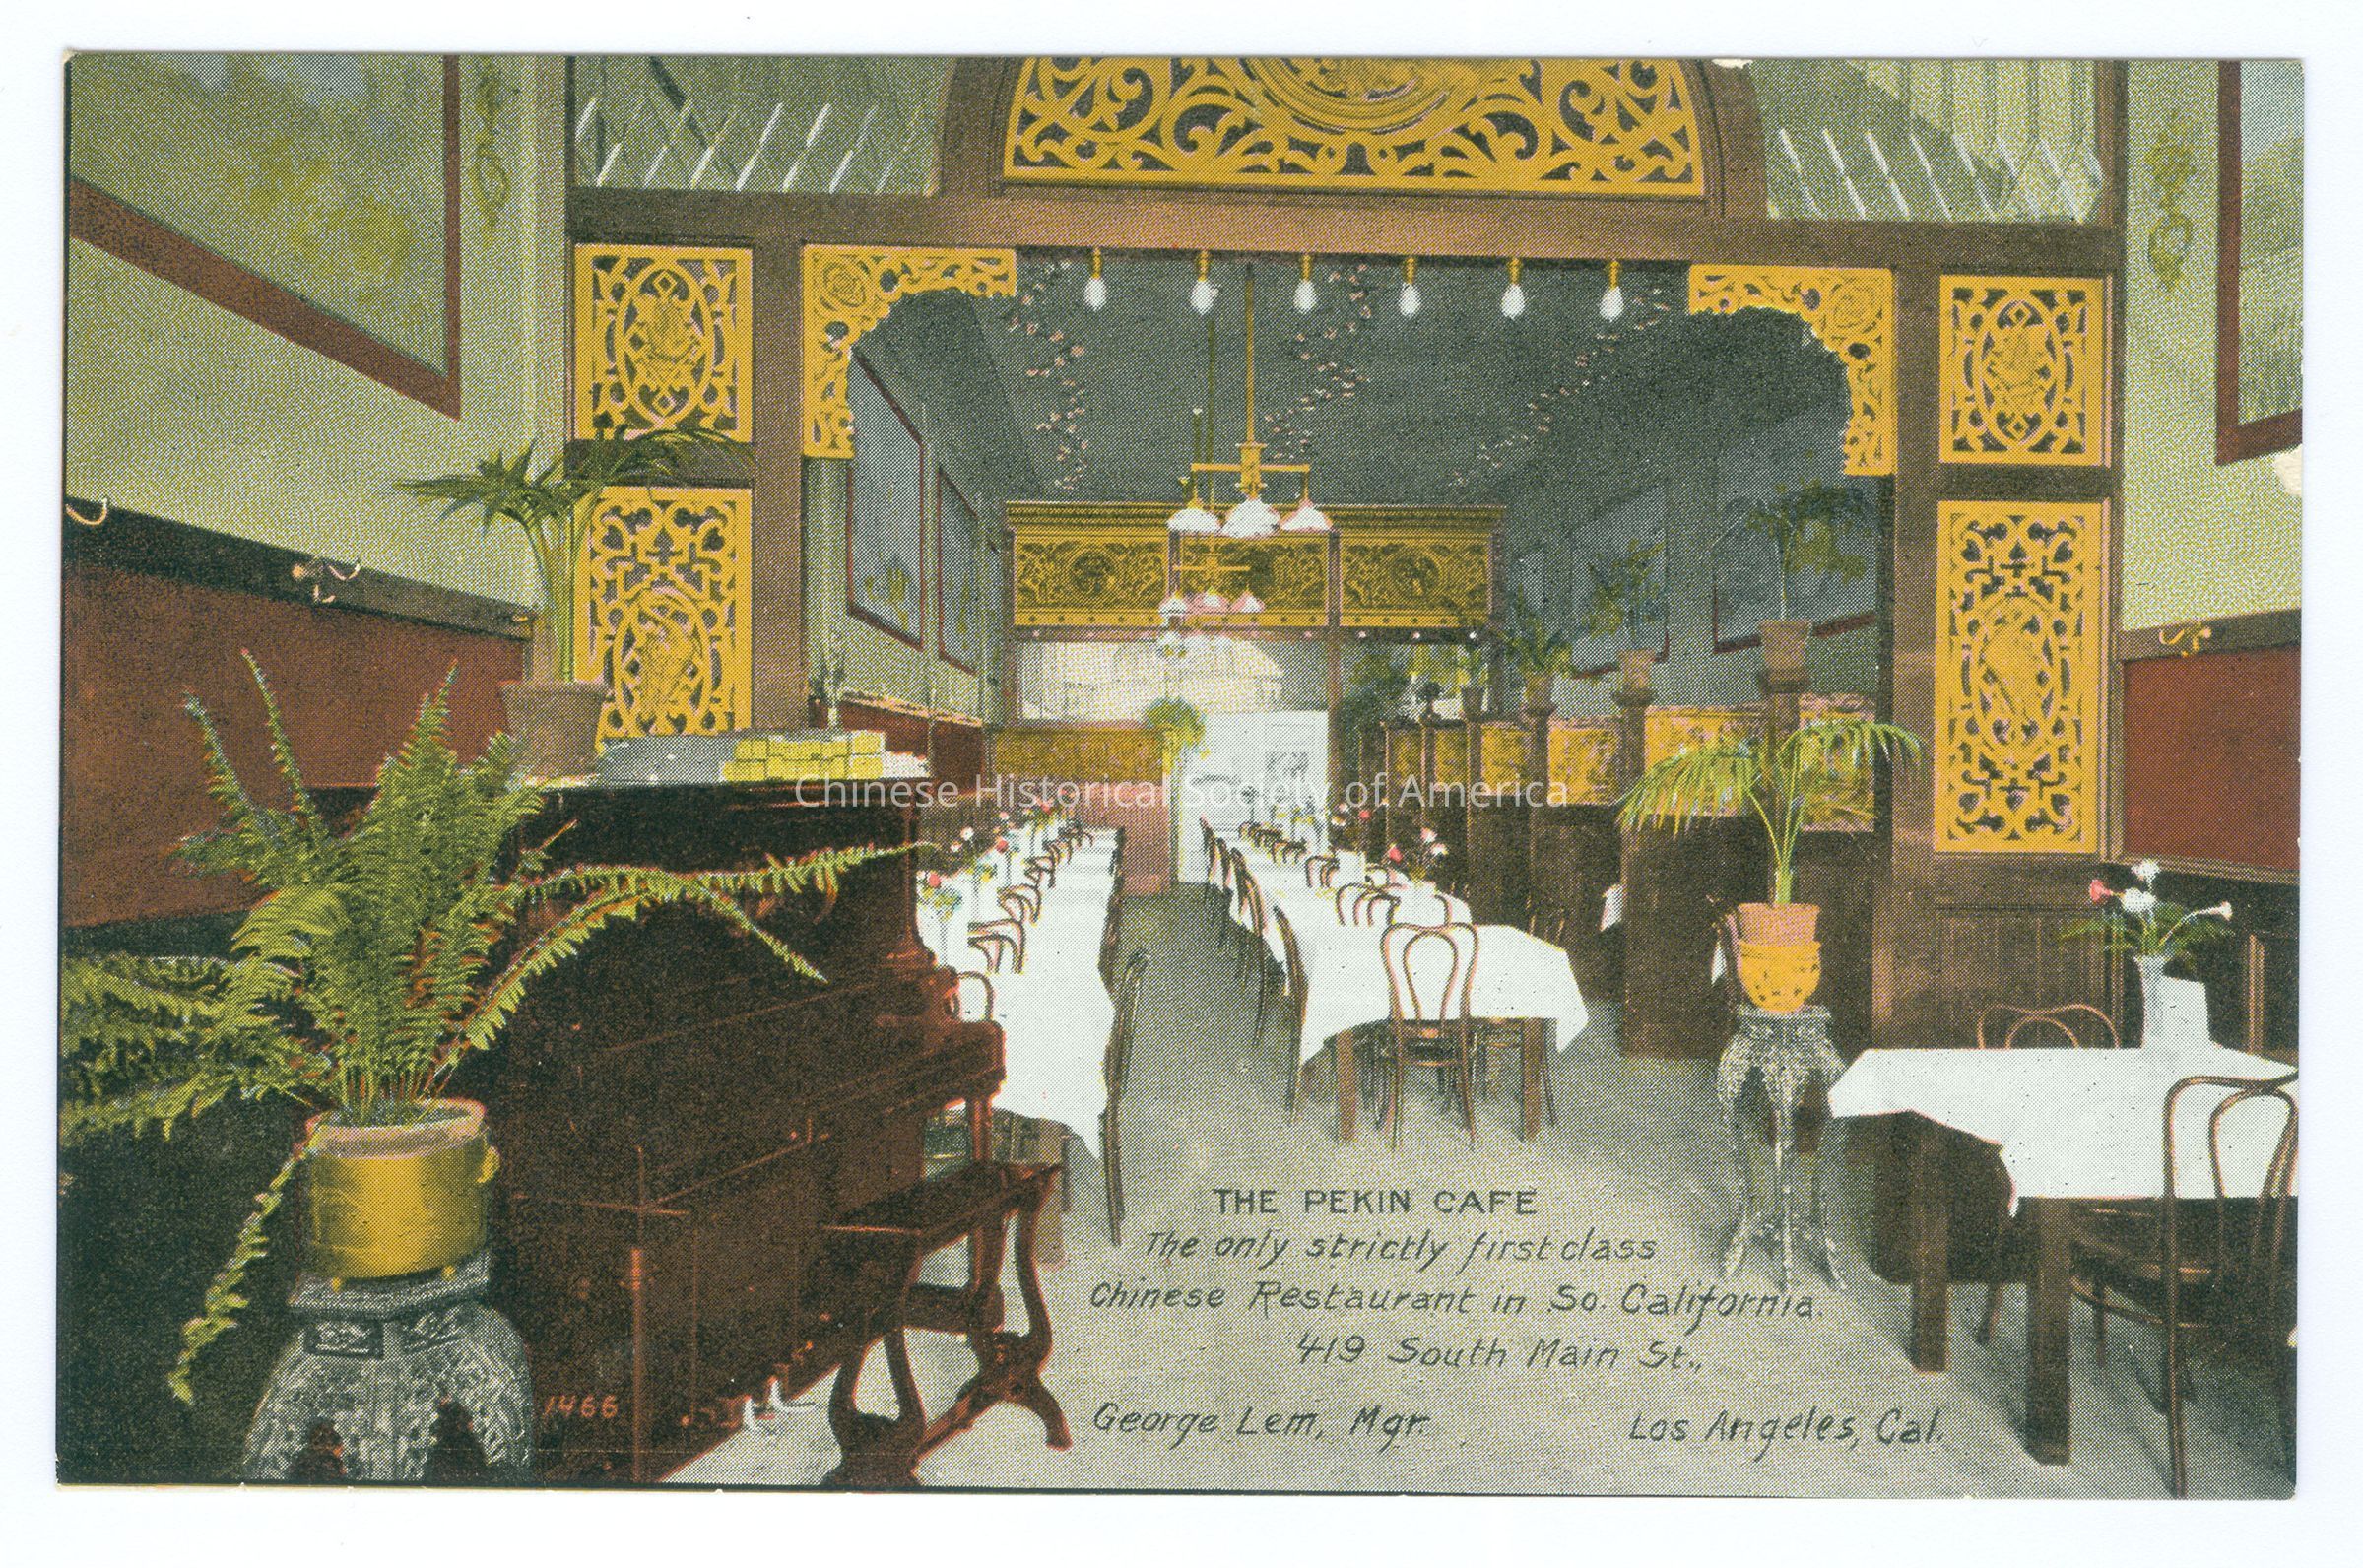 Chinese Historical Society of America
THE PEKIN CAFE
The only strictly first class
Chinese Restaurant in So. California.
419 South Main St.,
George Lem, Mgr. Los Angeles, Cal.
1466